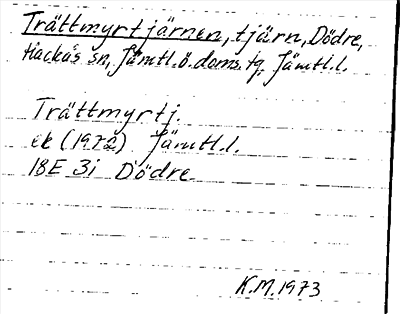 Trättmyrtjärnen, tjärn, Dödre,
Hackås sn, Jämtl.ö.doms. tg, Jämtl.l.
Trättmyrtj.
ek (1972) Jämtl.l.
18E 3i Dödre
K.M.1973